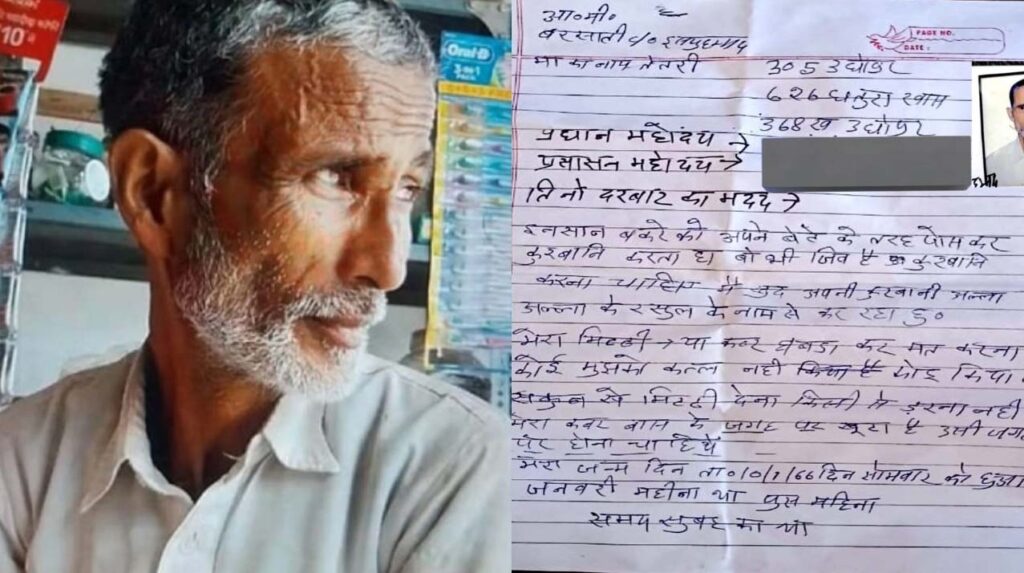 10
Oral-B
आ०मी०
बरसाती
PAGE NO.
DATE :
मा का नाम तेतरी
305 उधोपुर
626
368ख उधोपुर
प्रधान महोदय →
प्रसासन महोदय →
तिनो दरबार का मदद →
इनसान बकरे को अपने बेटे की तरह पोस कर
कुरबानि करता है। वो भी जिव है कुरबानि
करना चाहिए मै खुद अपनी कुरबानी अल्ला
अल्ला के रसुल के नाम से कर रहा हु०
मेरा मिटटी या कबर घबडा कर मत करना
कोई मुझको कत्ल नही किया है
सकुन से मिटटी देना किसी से डरना नही
मेरा कबर बास के जगह पर है उसी जगह
पर होना चाहिये
मेरा जन्म दिन ता० 10/1/66 दिन सोमवार को हुआ
जनवरी महीना था पुस महिना
समय सुबह का था